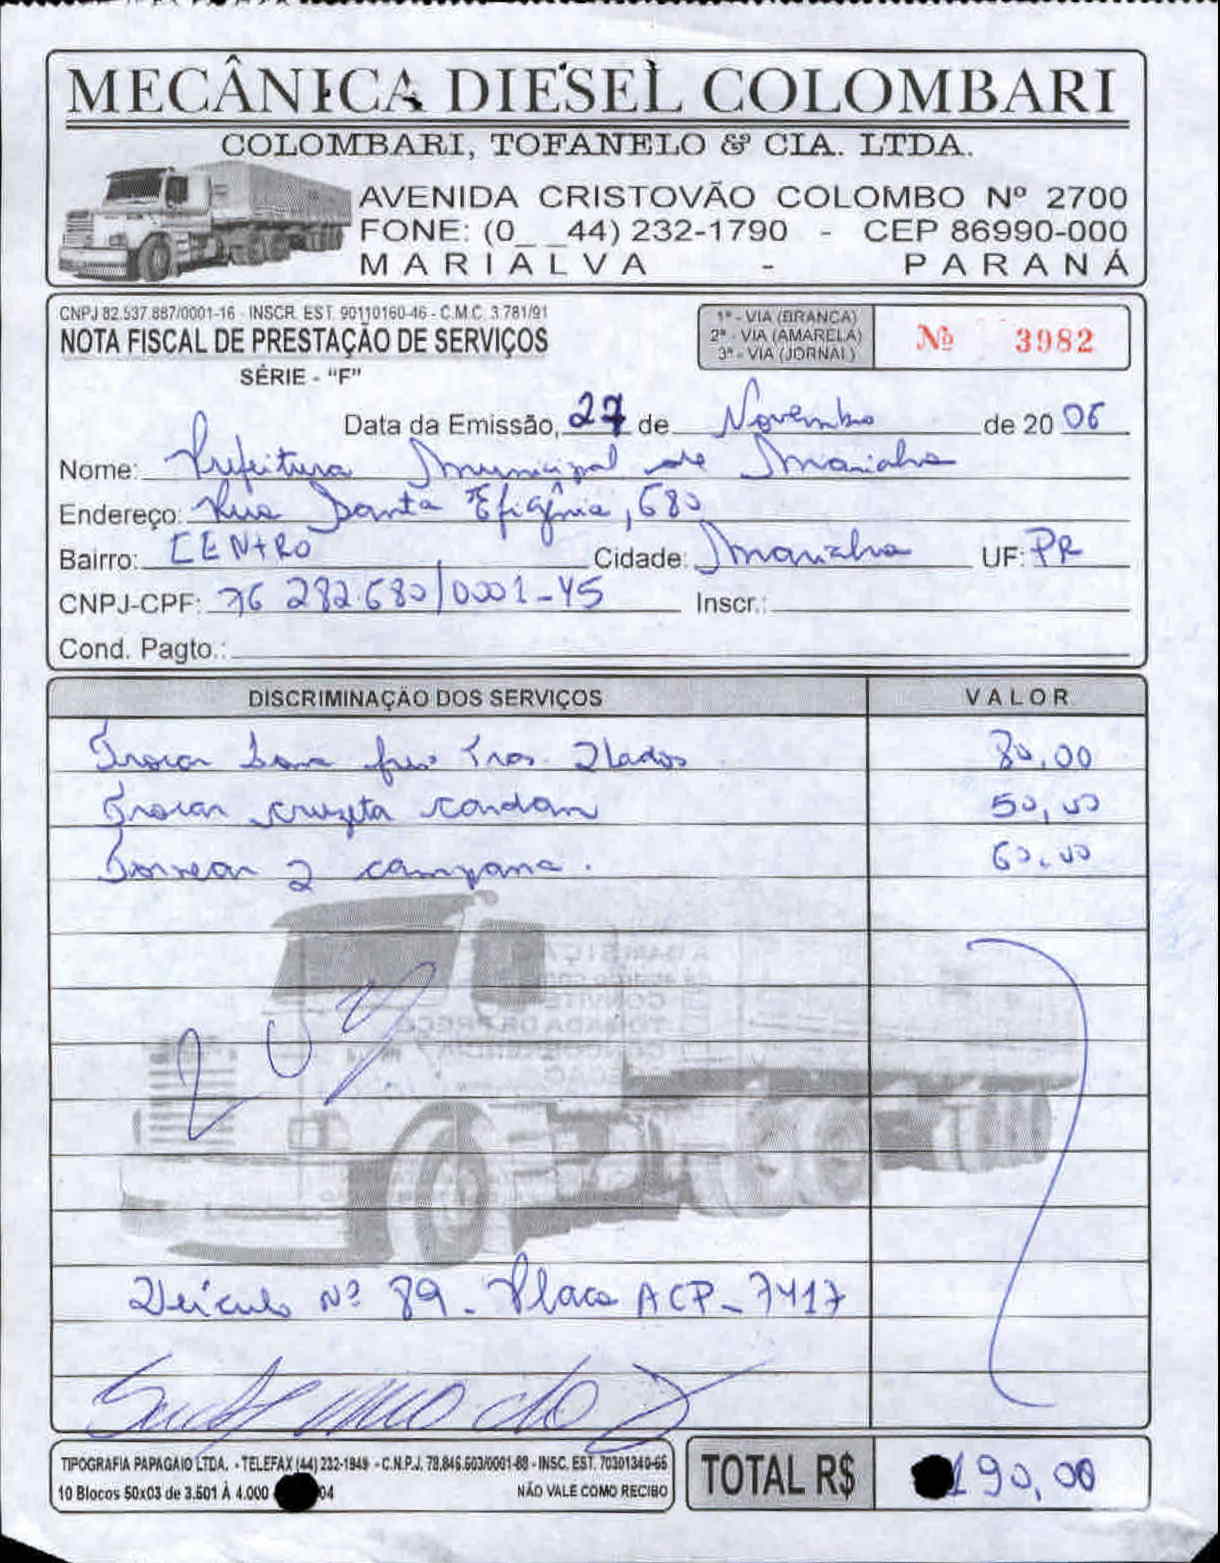 MECÂNICA DIESEL COLOMBARI
COLOMBARI, TOFANELO & CIA. LTDA.
AVENIDA CRISTOVÃO COLOMBO Nº 2700
FONE: (0_ _44) 232-1790 - CEP 86990-000
MARIALVA - PARANÁ
CNPJ 82.537.887/0001-16 - INSCR. EST. 90110160-46 - C.M.C. 3.781/91
NOTA FISCAL DE PRESTAÇÃO DE SERVIÇOS
SÉRIE - "F"
1ª - VIA (BRANCA)
2ª - VIA (AMARELA)
3ª - VIA (JORNAL)
Nº 3982
Data da Emissão, 27 de Novembro de 20 06
Nome: Prefeitura Municipal de Marialva
Endereço: Rua Santa Efigênia, 680
Bairro: CENTRO Cidade: Marialva UF: PR
CNPJ-CPF: 76 282.680/0001-45 Inscr.:
Cond. Pagto.:
DISCRIMINAÇÃO DOS SERVIÇOS VALOR
Trocar lona freio Tras. 2 lados 80,00
Trocar cruzeta cardan 50,00
Tornear 2 campana. 60,00
Veículo Nº 89 - Placa ACP-7417
TIPOGRAFIA PAPAGAIO LTDA. - TELEFAX (44) 232-1949 - C.N.P.J. 78.846.603/0001-88 - INSC. EST. 70301340-66
10 Blocos 50x03 de 3.501 À 4.000 04 NÃO VALE COMO RECIBO
TOTAL R$ 190,00